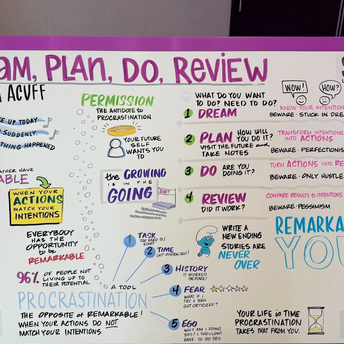 AM, PLAN, DO, REVIEW
ACUFF
UP TODAY
SUDDENLY
THING HAPPENED
PERMISSION
THE ANTIDOTE TO
PROCRASTINATION
YOUR FUTURE
SELF
WANTS YOU
TO
WHAT DO YOU WANT
TO DO? NEED TO DO?
1 DREAM
WOW!
HOW?
KNOW YOUR INTENTION
BEWARE: STUCK IN DREAM
2 PLAN HOW WILL YOU DO IT?
VISIT THE FUTURE AND
TAKE NOTES
TRANSFORM INTENTIONS
INTO ACTIONS
BEWARE: PERFECTIONISM
3 DO ARE YOU
DOING IT?
TURN ACTIONS INTO
BEWARE: ONLY HUSTLE
4 REVIEW
DID IT WORK?
COMPARE RESULTS TO INTENTIONS
BEWARE: PESSIMISM
RATHER HAVE
ABLE
WHEN
YOUR
ACTIONS
MATCH YOUR
INTENTIONS
the GROWING
IS IN THE
GOING
EVERYBODY
HAS THE
OPPORTUNITY
to be
REMARKABLE
96% OF PEOPLE NOT
LIVING UP TO
THEIR POTENTIAL
A TOOL
1 TASK
2 TIME
3 HISTORY
4 FEAR
WHAT IF I
5 EGO
WRITE A
NEW ENDING
STORIES ARE
NEVER
OVER
REMARKA
YOU
PROCRASTINATION
THE OPPOSITE of REMARKABLE!
WHEN YOUR ACTIONS DO NOT
MATCH YOUR INTENTIONS
YOUR LIFE is TIME
PROCRASTINATION
TAKES THAT FROM YOU.